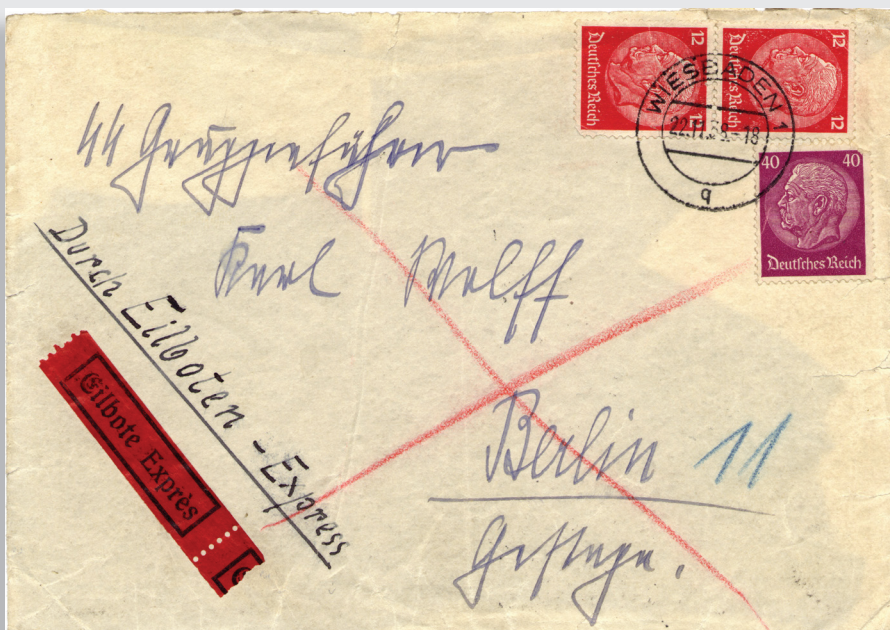 12 12
Deutsches Reich
12 12
Deutsches Reich
WIESBADEN 1
q
40 40
Deutsches Reich
SS Gruppenführer
Karl Wolff
Durch Eilboten - Express
Eilbote Exprès
Berlin 11
Gestapa.